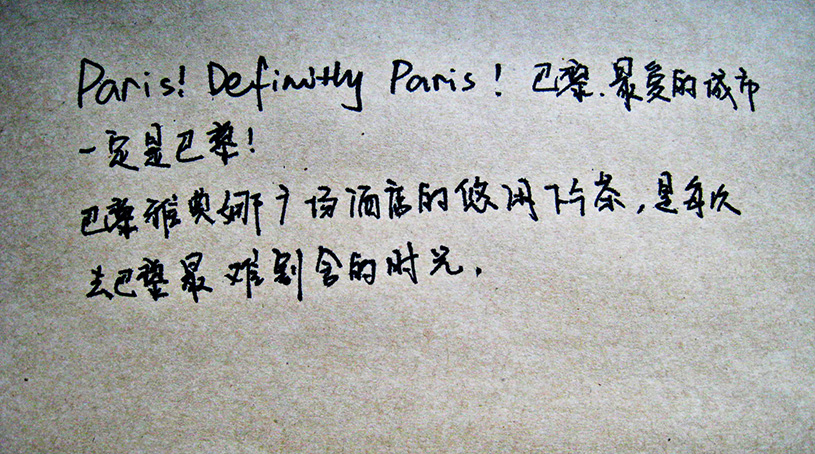 Paris! Definitly Paris! 巴黎.最爱的城市
一定是巴黎!
巴黎雅典娜广场酒店的悠闲下午茶,是每次
去巴黎最难割舍的时光.